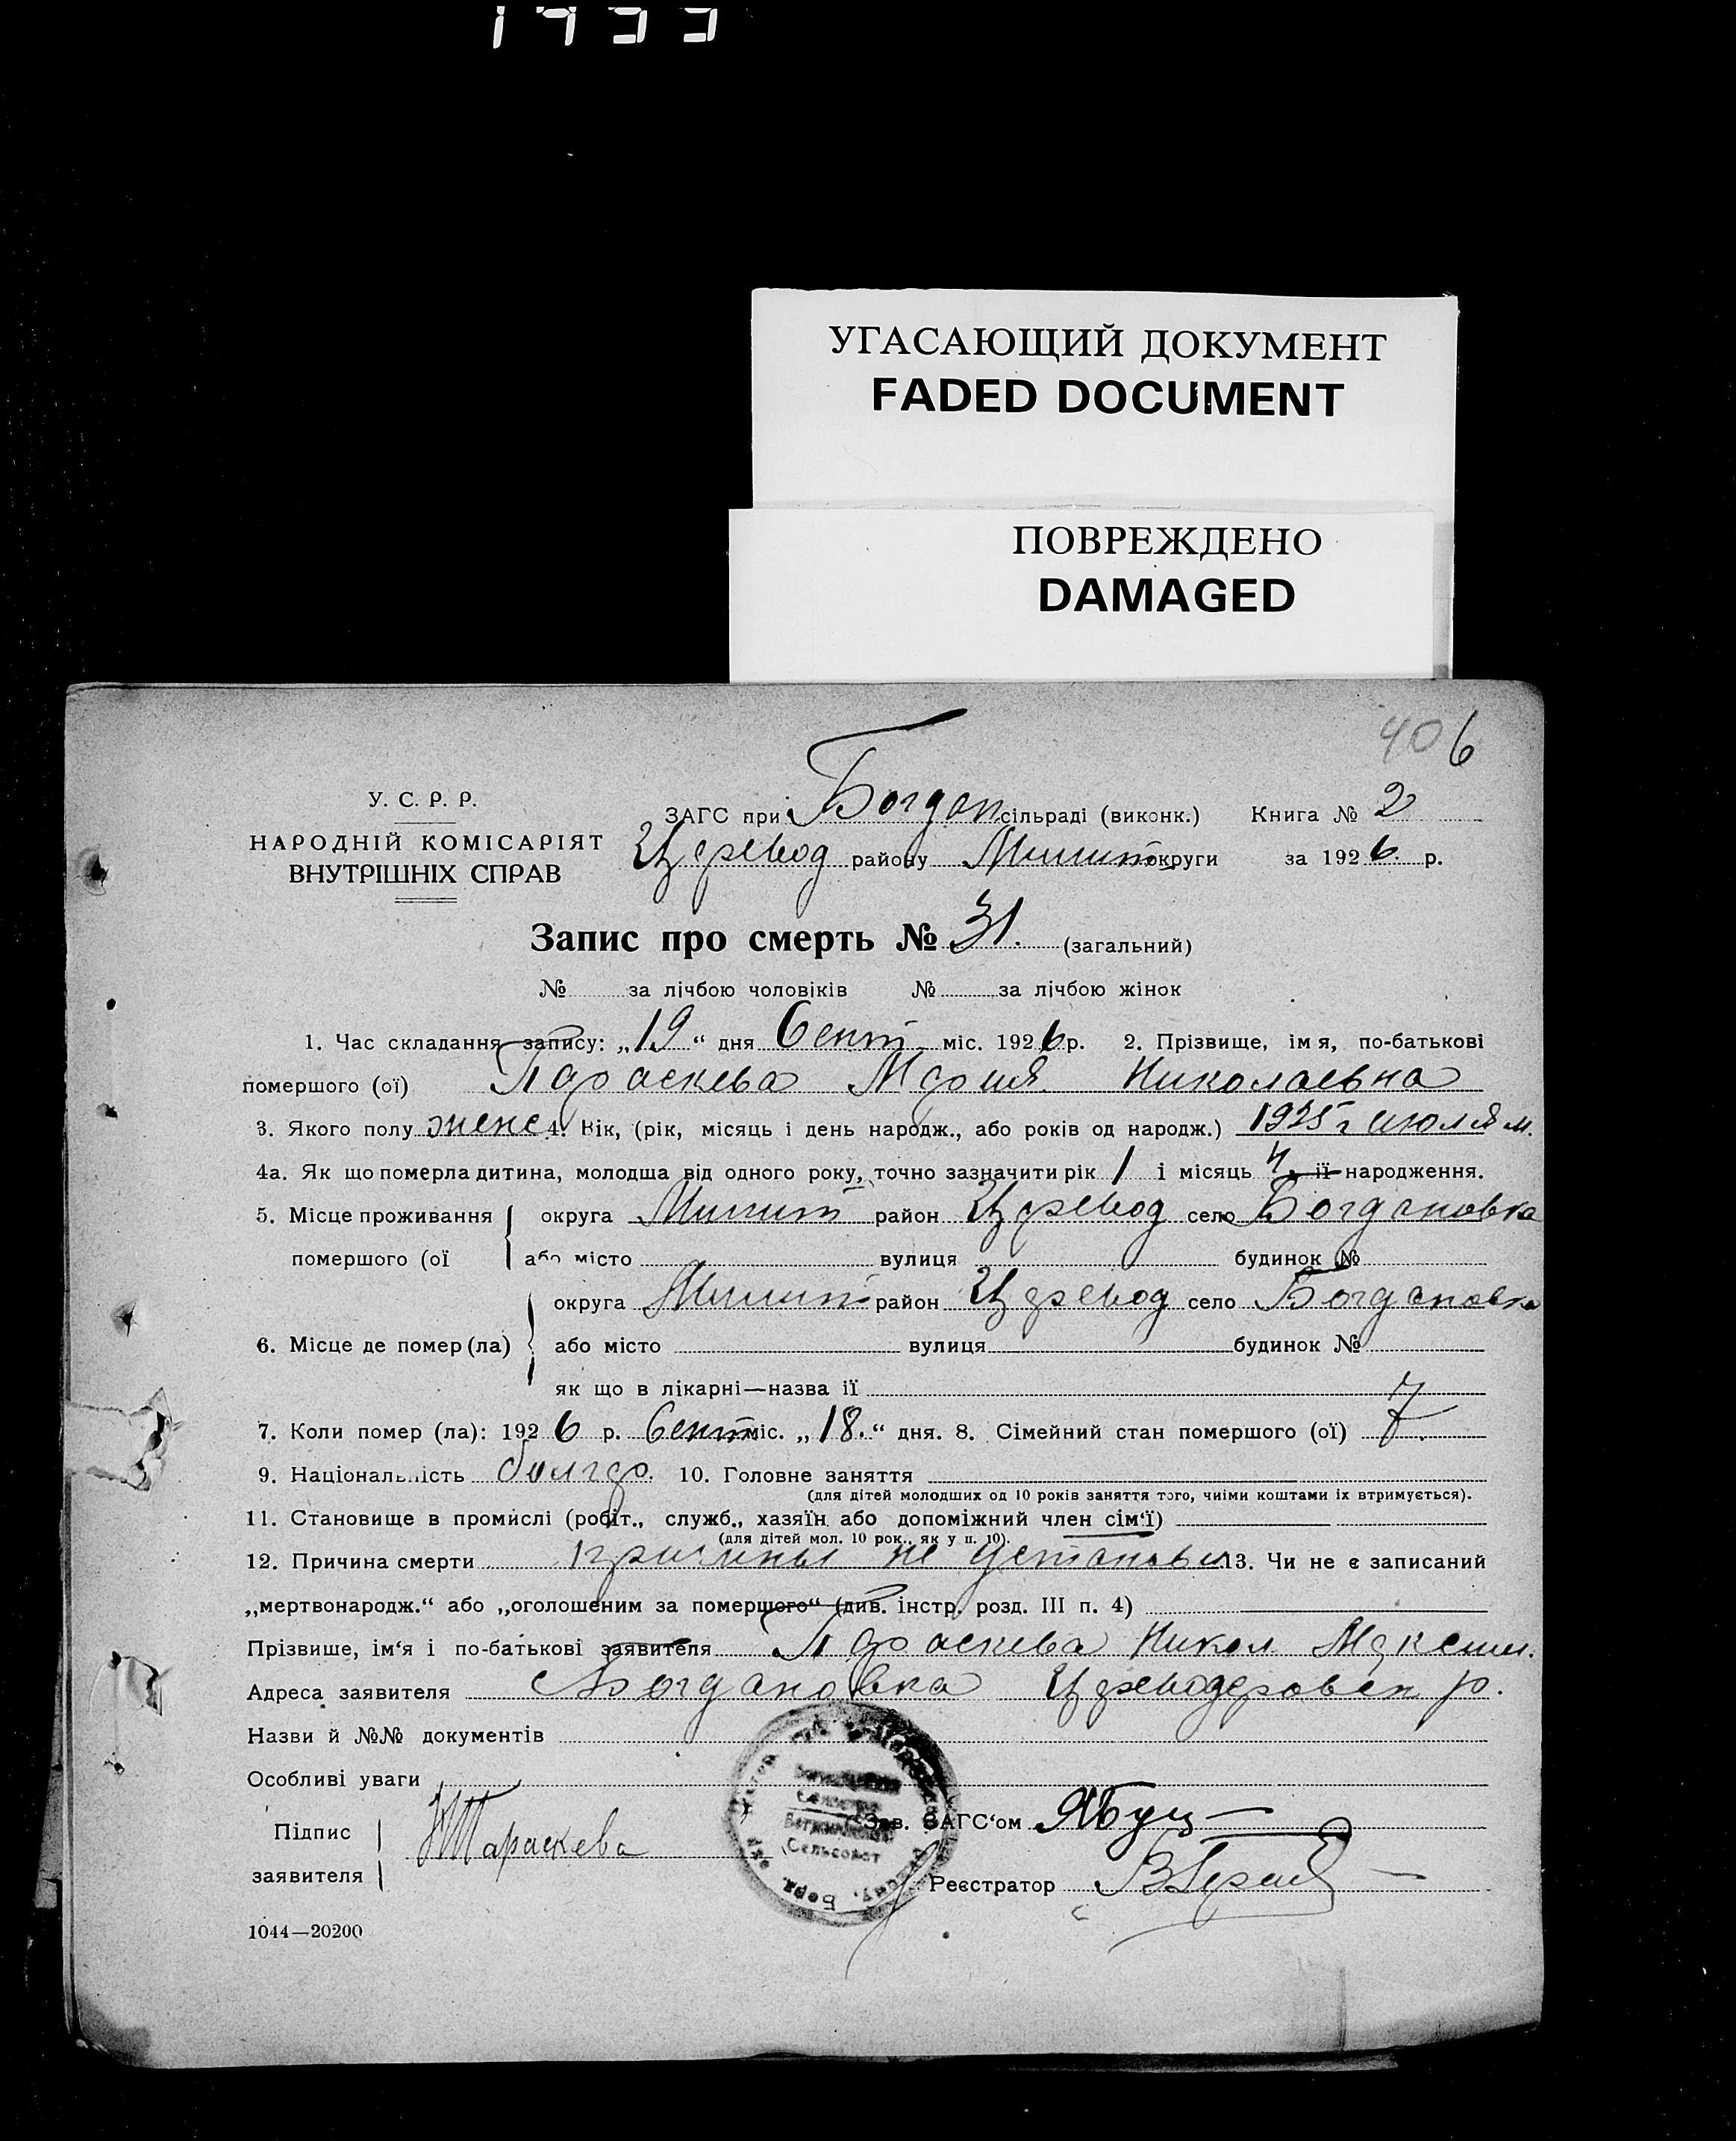 УГАСАЮЩИЙ ДОКУМЕНТ
FADED DOCUMENT
ПОВРЕЖДЕНО
DAMAGED
406
У. С. Р. Р.
НАРОДНІЙ КОМІСАРІЯТ
ВНУТРІШНІХ СПРАВ
ЗАГС при Богдан сільраді (виконк.) Книга № 2
Царевод району Мелит округи за 1926 р.
Запис про смерть № 31. (загальний)
№ за лічбою чоловіків № за лічбою жінок
1. Час складання запису: „19“ дня Сент міс. 1926 р. 2. Прізвище, імя, по-батькові
помершого (ої) Параскева Мария Николаевна
3. Якого полу женс 4. Вік, (рік, місяць і день народж., або років од народж.) 1925 г июля м.
4а. Як що померла дитина, молодша від одного року, точно зазначити рік 1 і місяць її народження.
5. Місце проживання округа Мелит район Царевод село Богдановка
помершого (ої або місто вулиця будинок №
округа Мелит район Царевод село Богдановка
6. Місце де помер (ла) або місто вулиця будинок №
як що в лікарні—назва її
7. Коли помер (ла): 1926 р. Сент міс. „18.“ дня. 8. Сімейний стан помершого (ої) 7
9. Національність болгар. 10. Головне заняття
(для дітей молодших од 10 років заняття того, чиїми коштами їх втримується).
11. Становище в промислі (робіт., служб., хазяїн або допоміжний член сім‘ї)
(для дітей мол. 10 рок., як у п. 10).
12. Причина смерти причины не установл 13. Чи не є записаний
„мертвонародж.“ або „оголошеним за померщого“ (див. інстр. розд. III п. 4)
Прізвише, ім‘я і по-батькові заявителя Параскева Никол Максим.
Адреса заявителя Богдановка Цареводаровск р.
Назви й №№ документів
Особливі уваги
Підпис
заявителя
НПараскева
Сельсовет
Зав. ЗАГС‘ом
Реєстратор
1044—20200